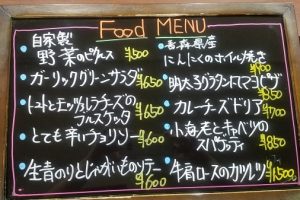 Food MENU
自家製
野菜のピクルス ¥500
ガーリックグリーンサラダ
¥650
トマトとモッツァレラチーズの
ブルスケッタ ¥650
とても辛いチョリソー
¥600
生青のりとじゃがいものソテー
¥600
青森県産
にんにくのホイル焼き
¥400
明太子グラタントマトピザ
¥850
カレーチーズドリア
¥700
小海老とキャベツの
スパゲッティ ¥850
牛肩ロースのカツレツ
¥1,500